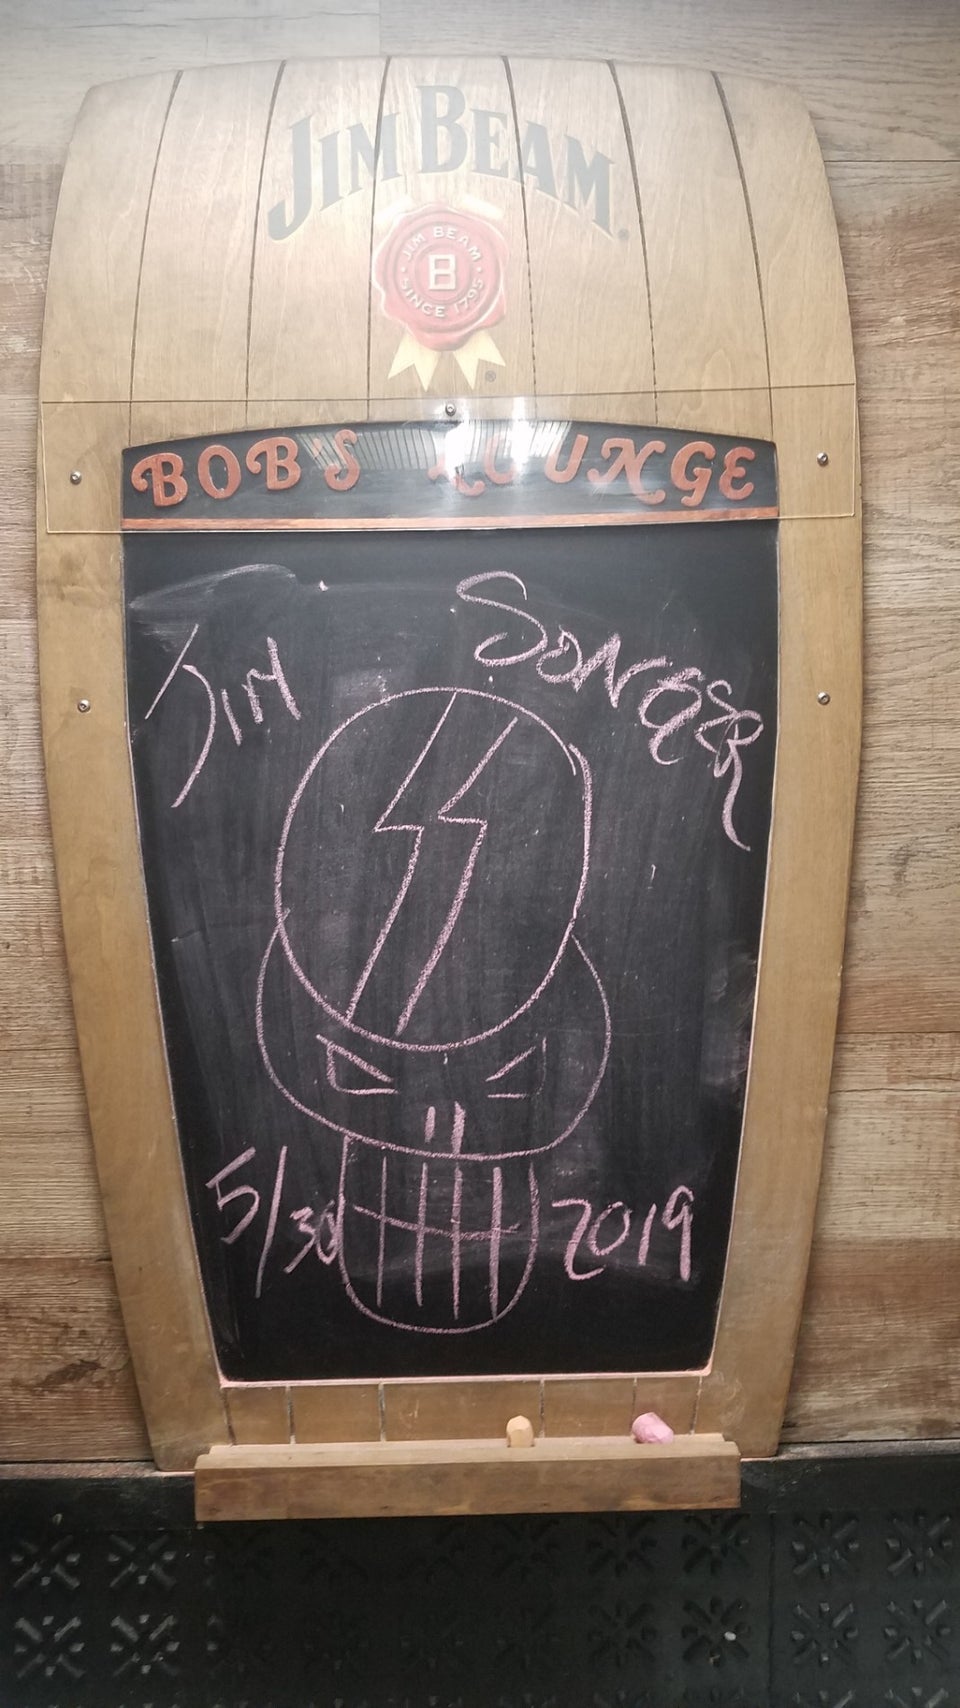 JIM BEAM
JIM BEAM
B
SINCE 1795
BOB'S LOUNGE
JIM SONGER
5/30 2019